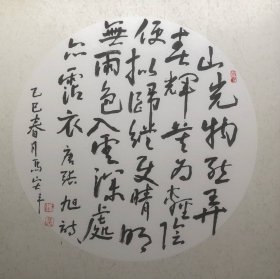 山光物態弄
春輝莫為輕陰
便擬歸縱使晴明
無雨色入雲深處
亦霑衣 唐張旭詩
乙巳春月馬安平